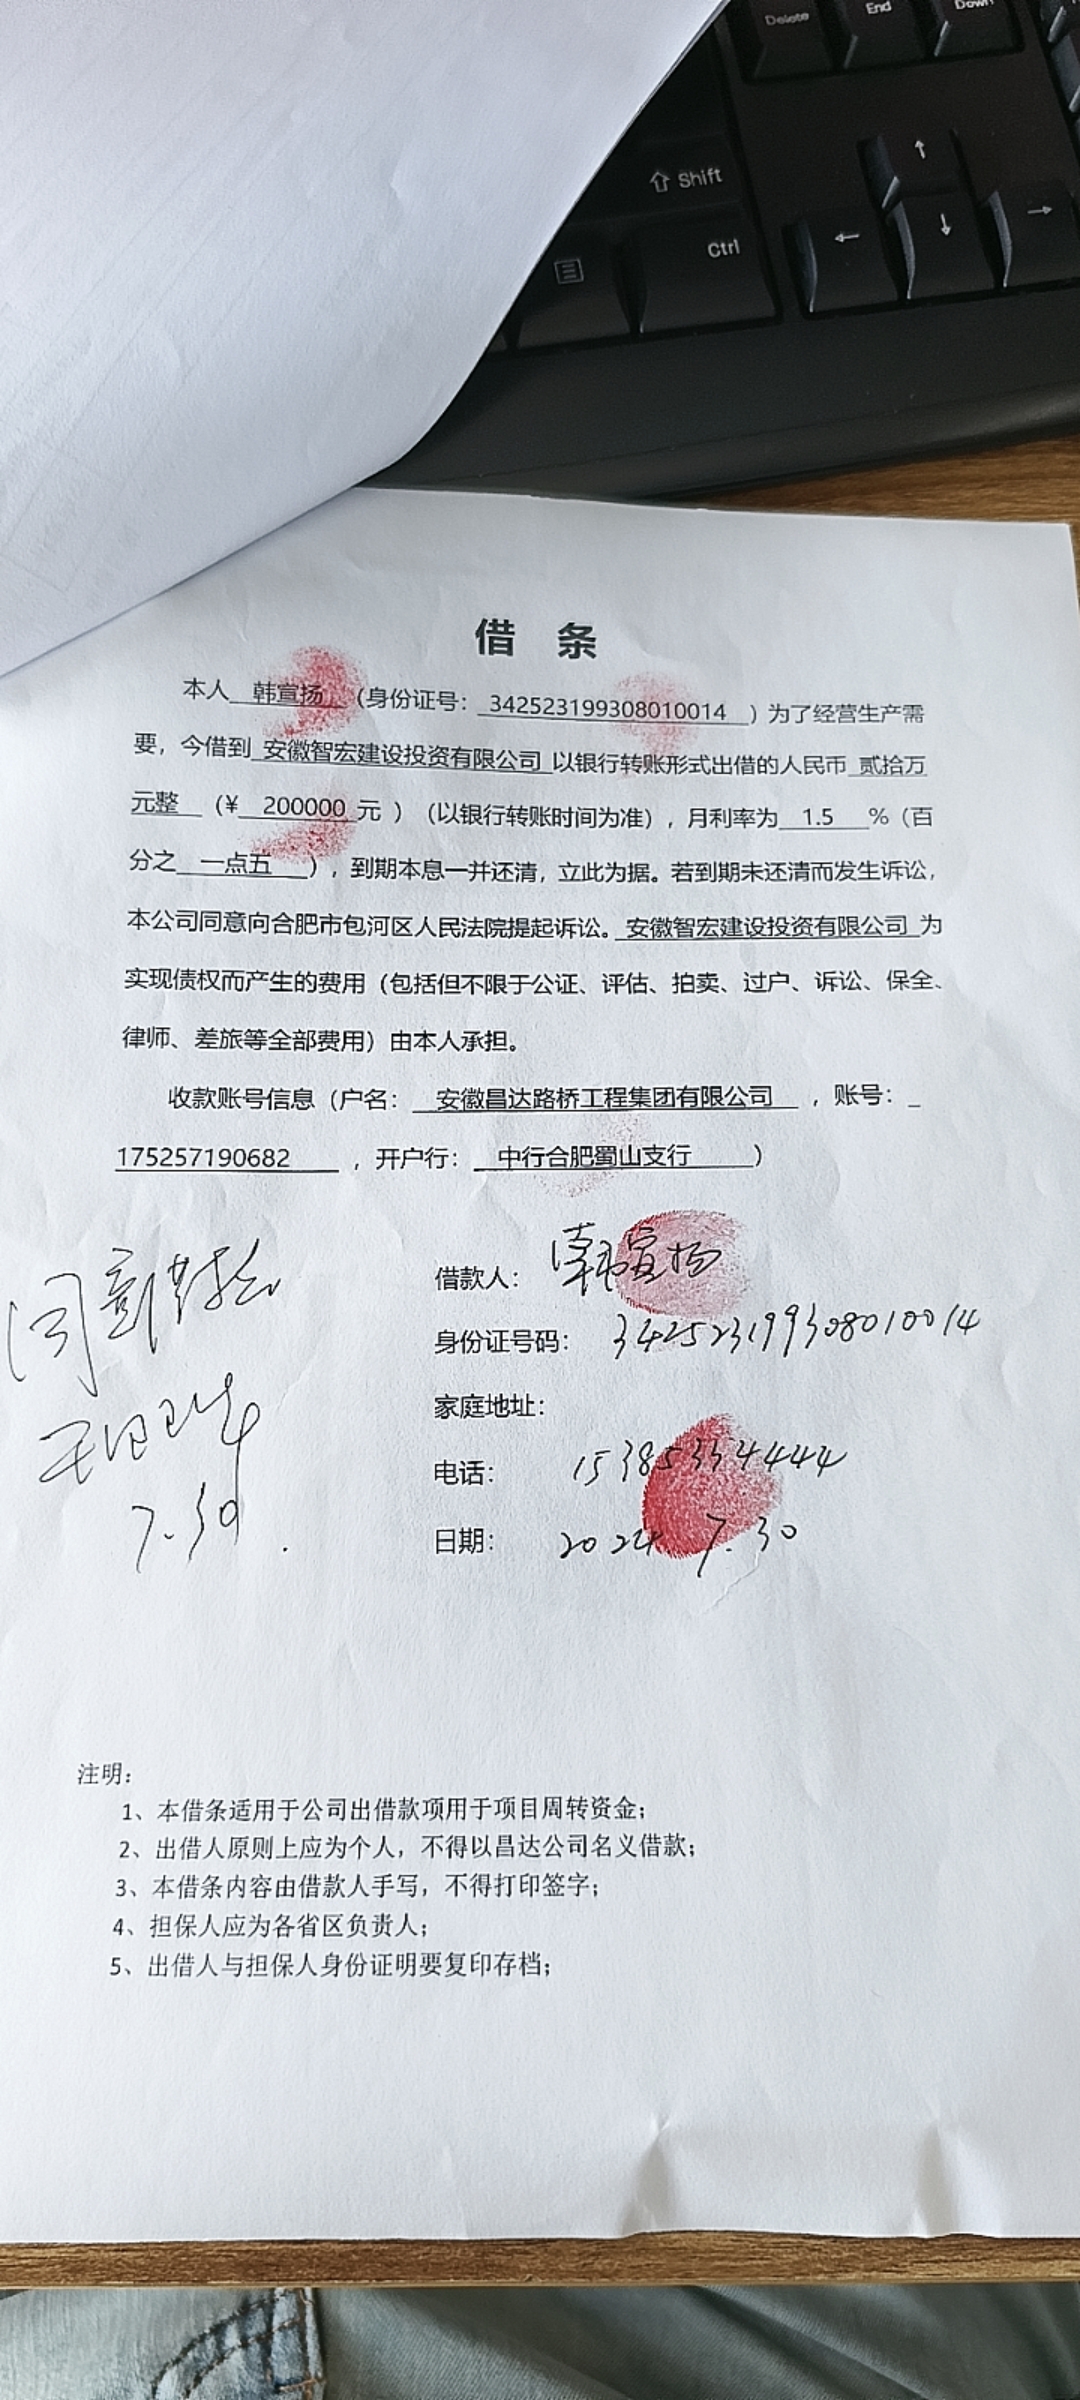 Delete
End
Down
Shift
Ctrl
借 条
本人 韩宣扬 （身份证号：342523199308010014 ）为了经营生产需
要，今借到 安徽智宏建设投资有限公司 以银行转账形式出借的人民币 贰拾万
元整 （¥ 200000 元 ）（以银行转账时间为准），月利率为 1.5 %（百
分之 一点五 ），到期本息一并还清，立此为据。若到期未还清而发生诉讼，
本公司同意向合肥市包河区人民法院提起诉讼。 安徽智宏建设投资有限公司 为
实现债权而产生的费用（包括但不限于公证、评估、拍卖、过户、诉讼、保全、
律师、差旅等全部费用）由本人承担。
收款账号信息（户名： 安徽昌达路桥工程集团有限公司 ，账号：
175257190682 ，开户行： 中行合肥蜀山支行 ）
借款人： 韩宣扬
身份证号码： 342523199308010014
家庭地址：
电话： 15385354444
日期： 2024.7.30
7.30.
注明：
1、本借条适用于公司出借款项用于项目周转资金；
2、出借人原则上应为个人，不得以昌达公司名义借款；
3、本借条内容由借款人手写，不得打印签字；
4、担保人应为各省区负责人；
5、出借人与担保人身份证明要复印存档；